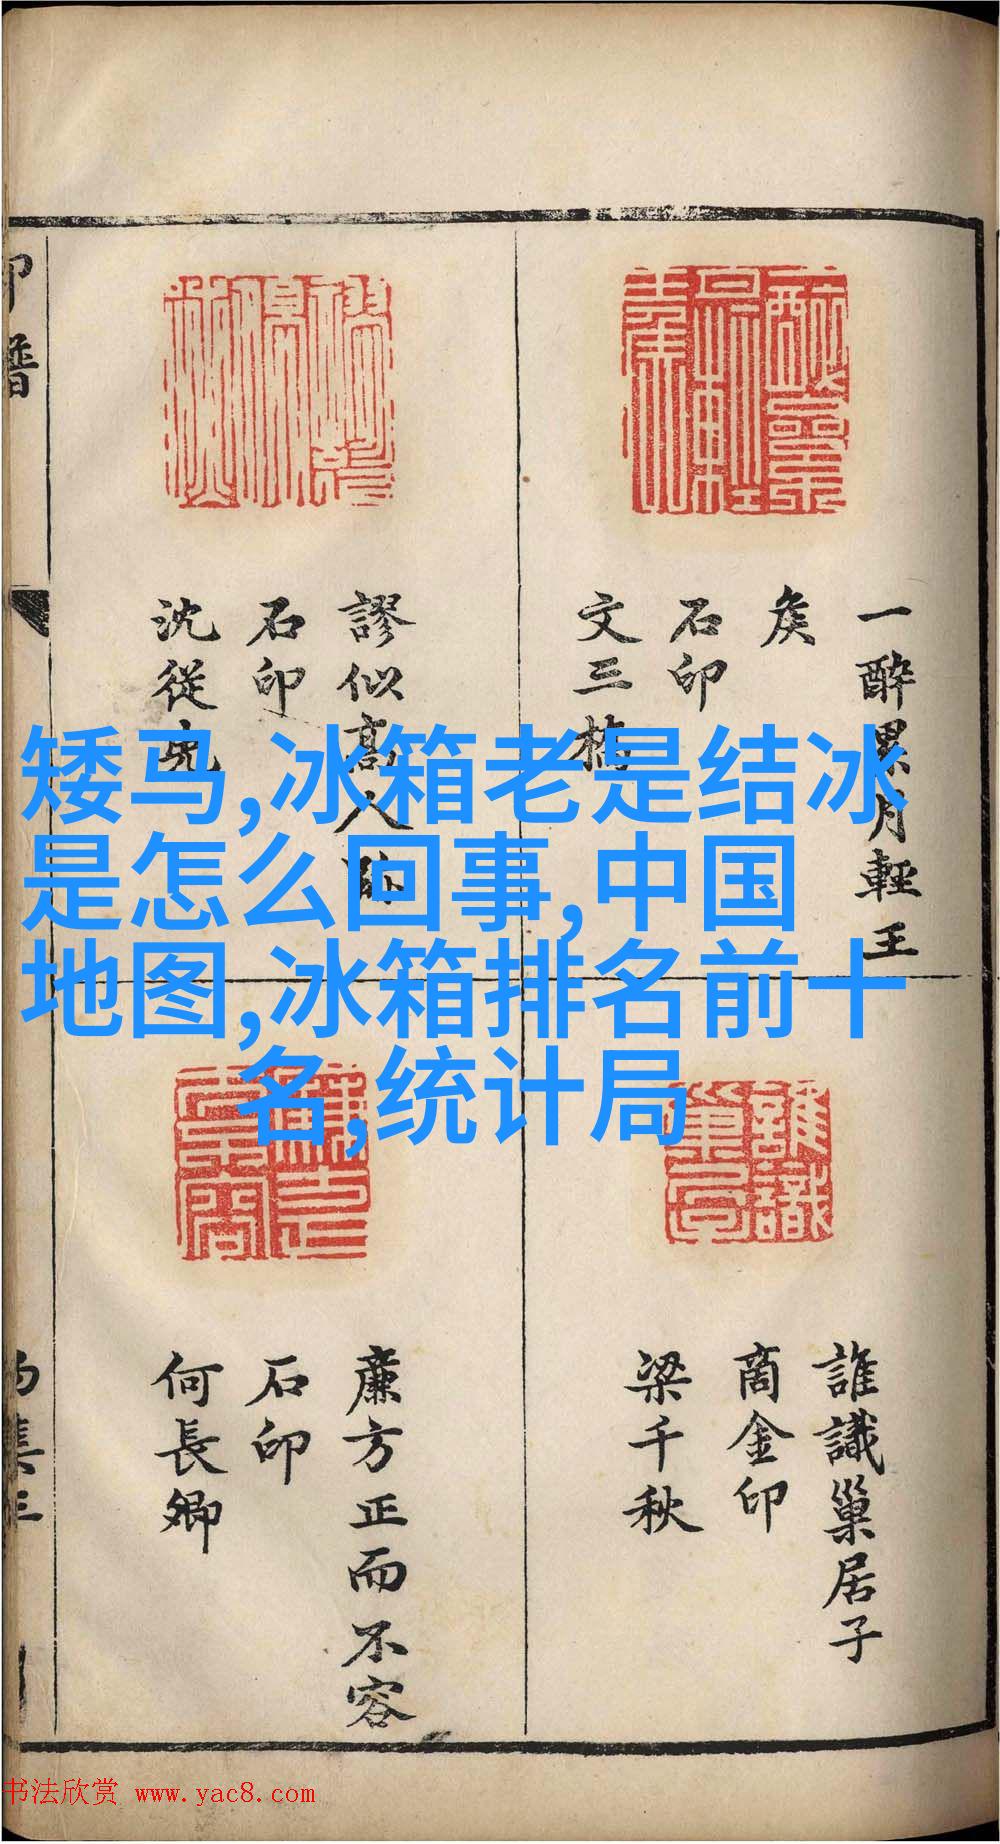 矮马,冰箱老是结冰
是怎么回事,中国
地图,冰箱排名前十
名,统计局
一醉累月輕王
矦
石印
文三橋
謬似高人
石印
沈從先
誰識巢居子
商金印
梁千秋
廉方正而不容
石印
何長卿
印譜
书法欣赏 www.yac8.com